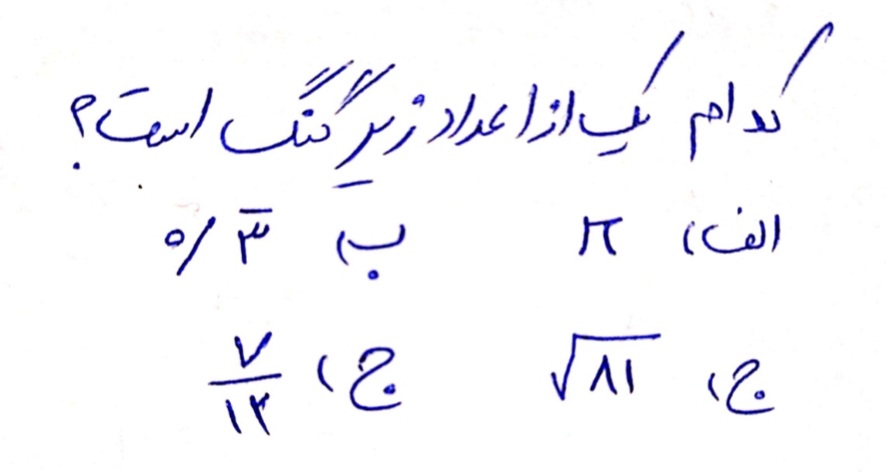 کدام یک از اعداد زیر گنگ است؟
الف) π ب) ۰/۳̅
ج) √۸۱ ج) ۷/۱۳